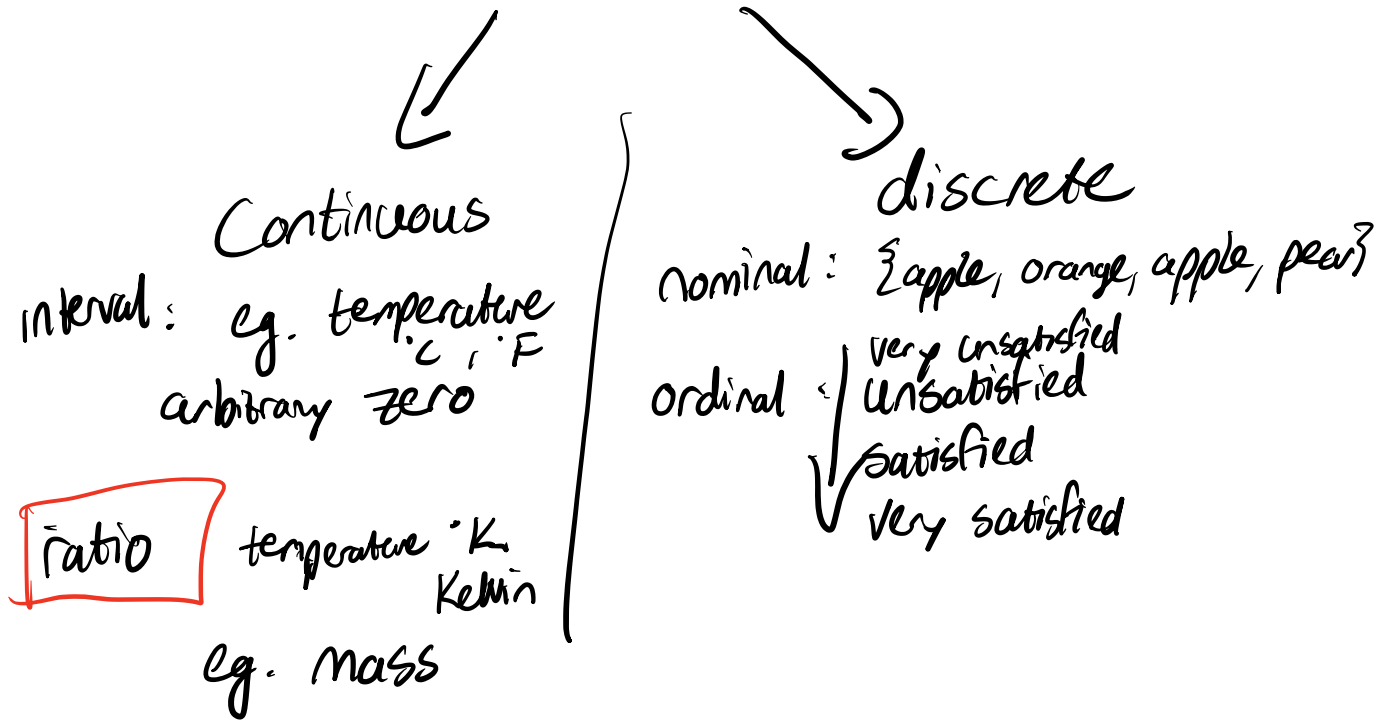 Continuous
interval: eg. temperature
°C, °F
arbitrary zero
ratio temperature °K
Kelvin
eg. mass
discrete
nominal: {apple, orange, apple, pear}
very unsatisfied
ordinal: unsatisfied
satisfied
very satisfied